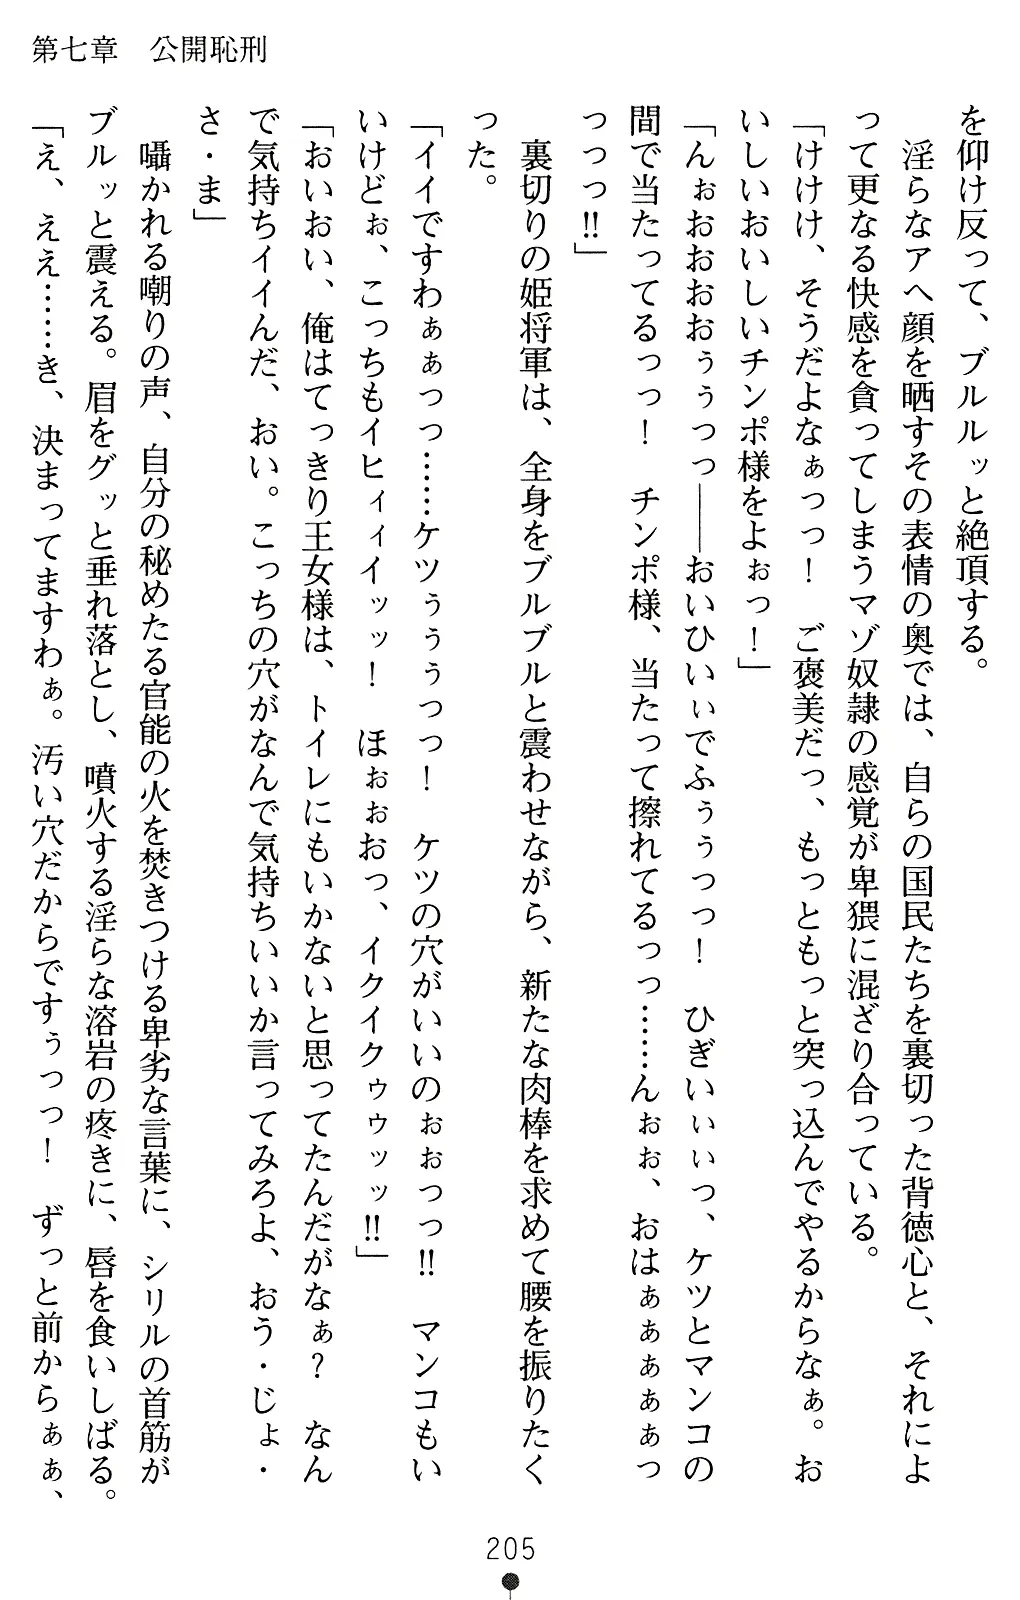 第七章　公開恥刑
を仰け反って、ブルルッと絶頂する。
　淫らなアヘ顔を晒すその表情の奥では、自らの国民たちを裏切った背徳心と、それによ
って更なる快感を貪ってしまうマゾ奴隷の感覚が卑猥に混ざり合っている。
「けけけ、そうだよなぁっっ！　ご褒美だっ、もっともっと突っ込んでやるからなぁ。お
いしいおいしいチンポ様をよぉっ！」
「んぉおおおおぅぅっっ――おいひいぃでふぅぅっっ！　ひぎいぃぃっ、ケツとマンコの
間で当たってるっっ！　チンポ様、当たって擦れてるっっ……んぉぉ、おはぁぁぁぁぁっ
っっっっ!!」
　裏切りの姫将軍は、全身をブルブルと震わせながら、新たな肉棒を求めて腰を振りたく
った。
「イイですわぁぁっっ……ケツぅぅぅっっ！　ケツの穴がいいのぉぉっっ!!　マンコもい
いけどぉ、こっちもイヒィィイッッ！　ほぉぉおっ、イクイクゥゥッッ!!」
「おいおい、俺はてっきり王女様は、トイレにもいかないと思ってたんだがなぁ？　なん
で気持ちイイんだ、おい。こっちの穴がなんで気持ちいいか言ってみろよ、おう・じょ・
さ・ま」
　囁かれる嘲りの声、自分の秘めたる官能の火を焚きつける卑劣な言葉に、シリルの首筋が
ブルッと震える。眉をグッと垂れ落とし、噴火する淫らな溶岩の疼きに、唇を食いしばる。
「え、ええ……き、決まってますわぁ。汚い穴だからですぅっっ！　ずっと前からぁぁ、
205